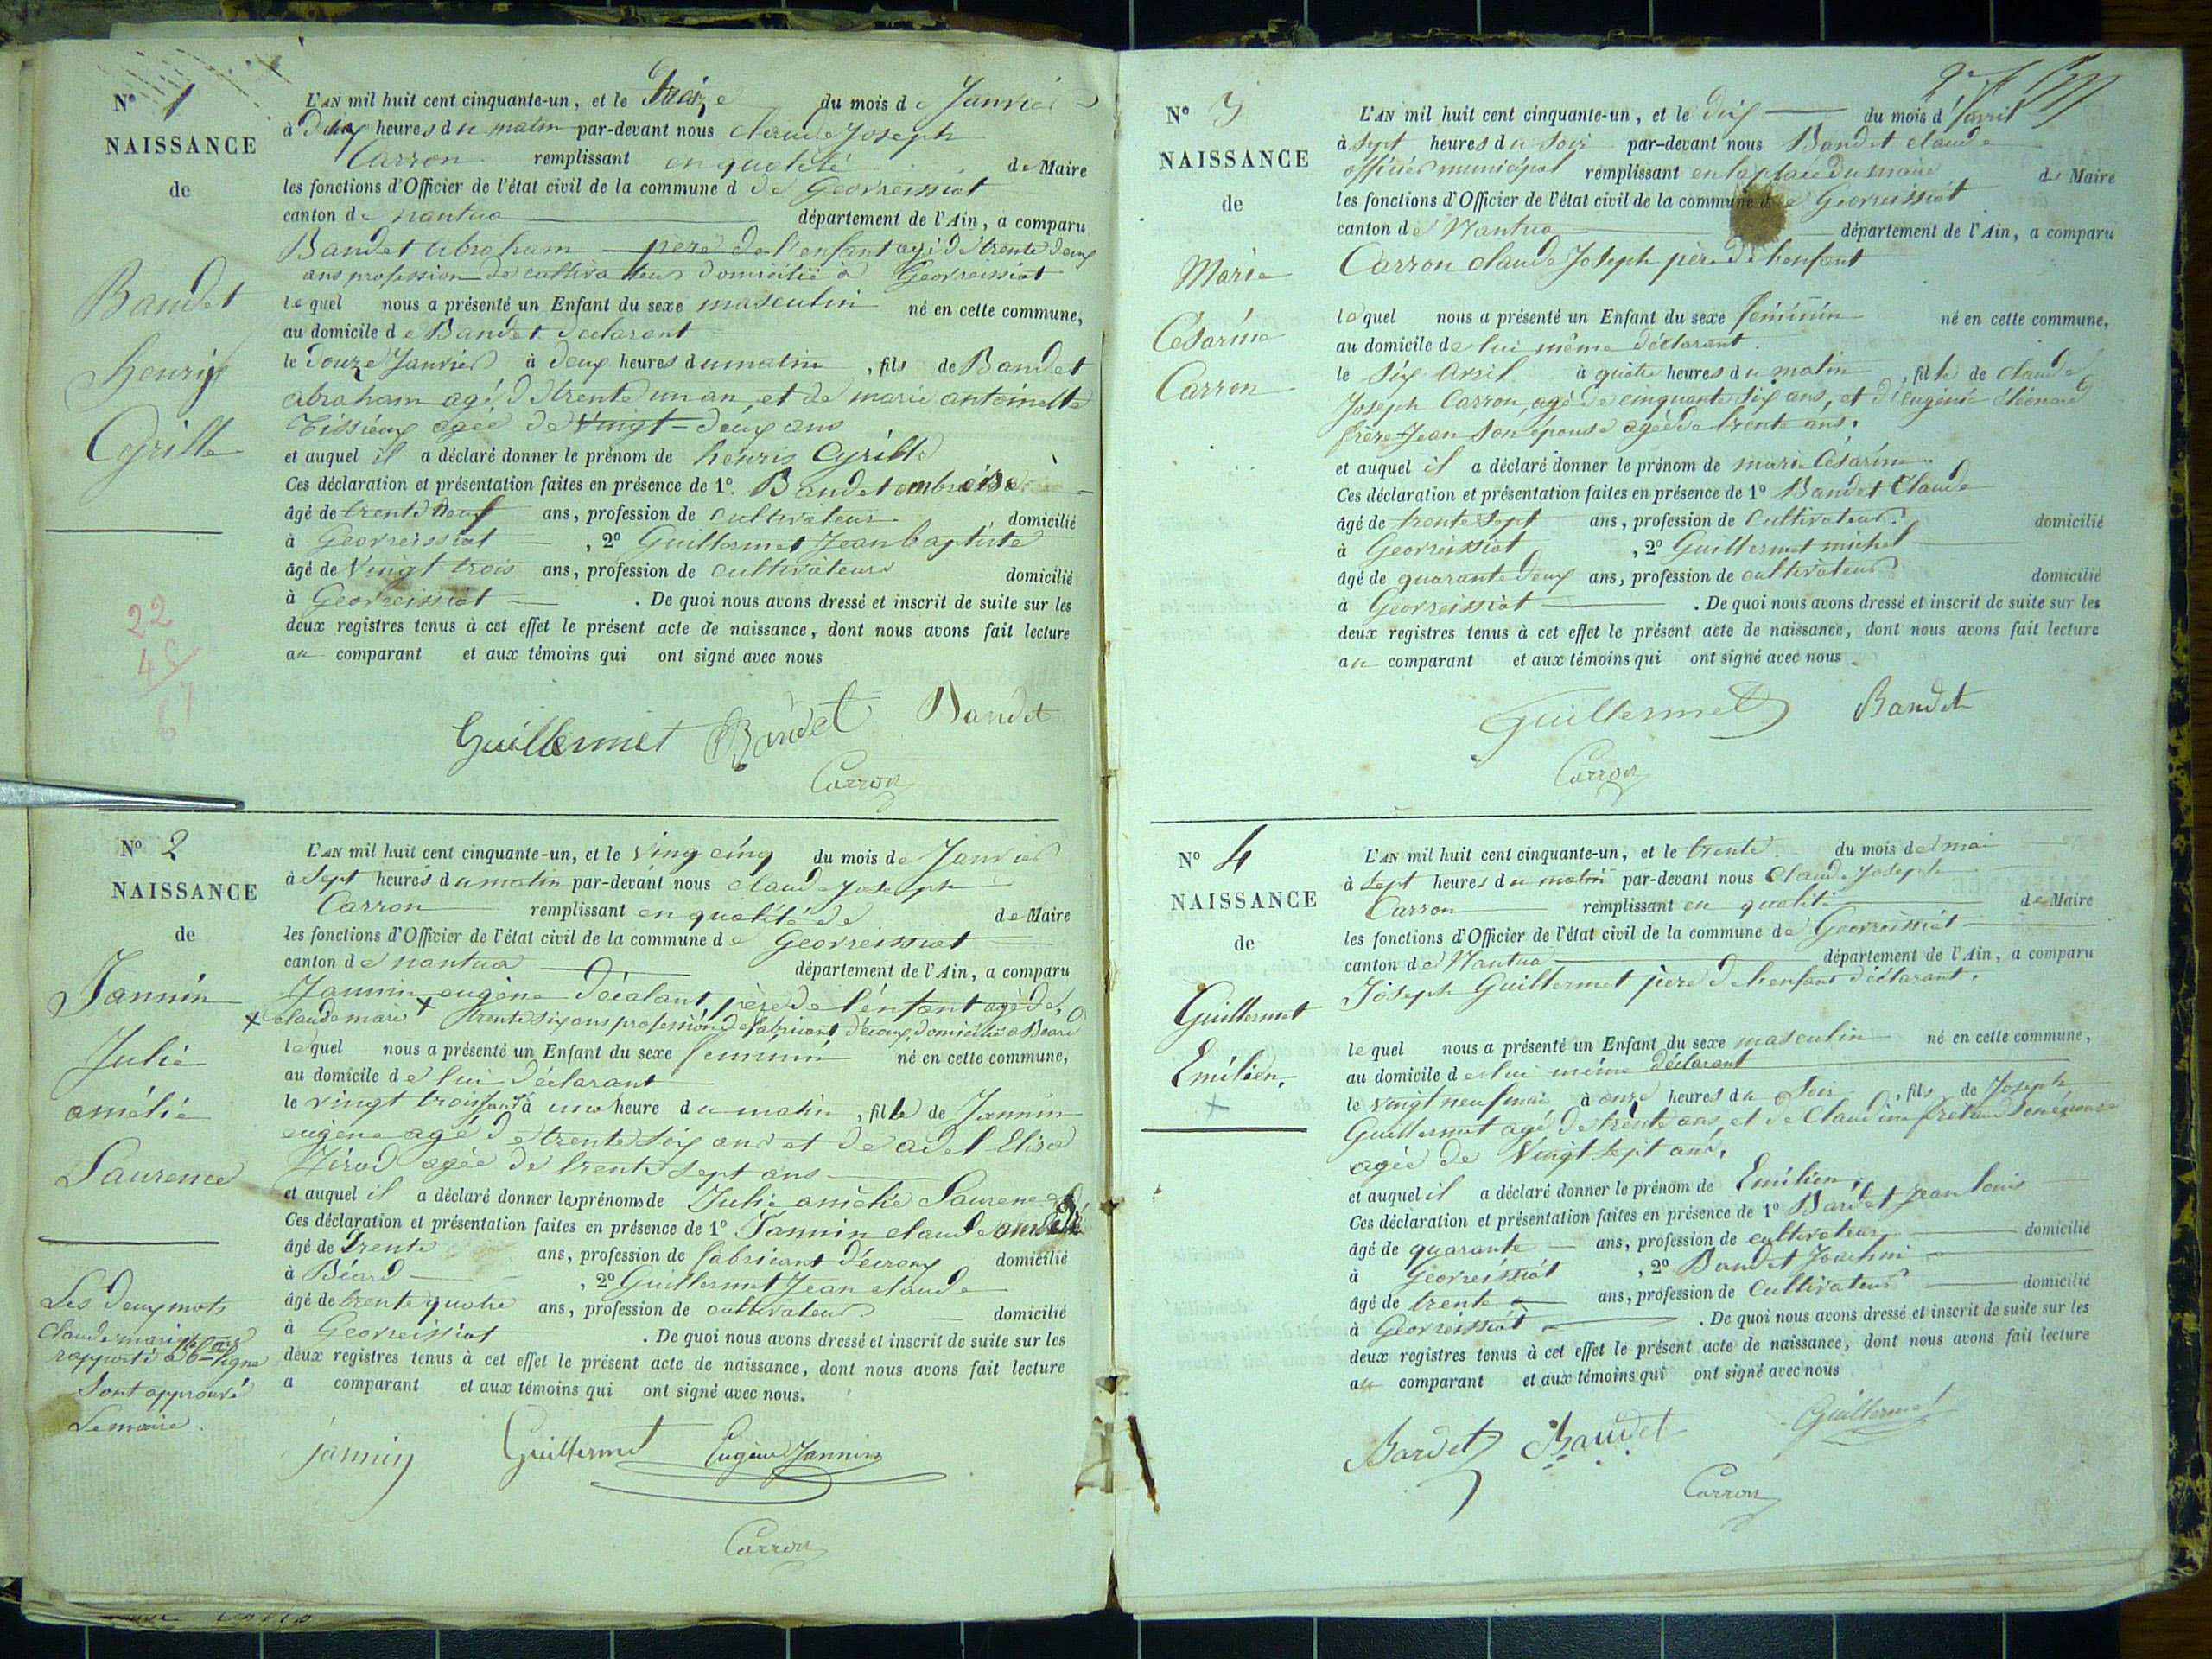 N° 1
NAISSANCE
de
Baudet
henri
Cyrille
22
45
67
L'AN mil huit cent cinquante-un, et le treize du mois de Janvier
à deux heures du matin par-devant nous claude Joseph
Carron remplissant en qualité de Maire
les fonctions d'Officier de l'état civil de la commune d de Geovreissiat
canton de nantua département de l'Ain, a comparu
Baudet abraham père de l'enfant agé de trente deux
ans profession de cultivateur domicilié à Geovreissiat
lequel nous a présenté un Enfant du sexe masculin né en cette commune,
au domicile de Baudet declarant
le douze Janvier à deux heures du matin, fils de Baudet
abraham agé de trente un an, et de marie antoinette
Tissieux agée de Vingt-deux ans
et auquel il a déclaré donner le prénom de henri Cyrille
Ces déclaration et présentation faites en présence de 1°. Baudet ambroise
âgé de trente neuf ans, profession de cultivateur domicilié
à Geovreissiat, 2° Guillermet Jean baptiste
âgé de Vingt trois ans, profession de cultivateur domicilié
à Geovreissiat. De quoi nous avons dressé et inscrit de suite sur les
deux registres tenus à cet effet le présent acte de naissance, dont nous avons fait lecture
au comparant et aux témoins qui ont signé avec nous
Guillermet Baudet Baudet
Carron
N° 2
NAISSANCE
de
Jannin
Julie
amélie
Laurence
Les deux mots
Claude marie
rapporté a 6e ligne
Sont approuvé
Le maire.
L'AN mil huit cent cinquante-un, et le Ving cinq du mois de Janvier
à Sept heures du matin par-devant nous claude Joseph
Carron remplissant en qualité de de Maire
les fonctions d'Officier de l'état civil de la commune de Geovreissiat
canton de nantua département de l'Ain, a comparu
Jannin eugène décalant père de l'enfant agé de
x claude marie x trente six ans profession de fabricant d'écrous domicilié a Béard
lequel nous a présenté un Enfant du sexe feminin né en cette commune,
au domicile de lui déclarant
le vingt trois Janv à une heure du matin, fille de Jannin
eugène agé de trente six ans et de adel Elisa
Nirod agée de trente sept ans
et auquel il a déclaré donner les prénoms de Julie amélie Laurence
Ces déclaration et présentation faites en présence de 1° Jannin claude
âgé de trente ans, profession de fabricant d'écrous domicilié
à Béard, 2° Guillermet Jean claude
âgé de trente quatre ans, profession de cultivateur domicilié
à Geovreissiat. De quoi nous avons dressé et inscrit de suite sur les
deux registres tenus à cet effet le présent acte de naissance, dont nous avons fait lecture
a comparant et aux témoins qui ont signé avec nous.
jannin Guillermet Eugène Jannin
Carron
N° 3
NAISSANCE
de
Marie
Césarine
Carron
L'AN mil huit cent cinquante-un, et le dix du mois d'avril
à sept heures du soir par-devant nous Baudet claude
officier municipal remplissant en la place du maire de Maire
les fonctions d'Officier de l'état civil de la commune de Geovreissiat
canton de Nantua département de l'Ain, a comparu
Carron claude Joseph père de l'enfant
lequel nous a présenté un Enfant du sexe féminin né en cette commune,
au domicile de lui même déclarant.
le dix avril à quatre heures du matin, fille de claude
Joseph Carron, agé de cinquante six ans, et d'Eugénie Eléonard
frère-Jean son épouse agée de trente ans.
et auquel il a déclaré donner le prénom de marie Césarine
Ces déclaration et présentation faites en présence de 1° Baudet Claude
âgé de trente sept ans, profession de cultivateur domicilié
à Geovreissiat, 2° Guillermet michel
âgé de quarante deux ans, profession de cultivateur domicilié
à Geovreissiat. De quoi nous avons dressé et inscrit de suite sur les
deux registres tenus à cet effet le présent acte de naissance, dont nous avons fait lecture
au comparant et aux témoins qui ont signé avec nous.
Guillermet Baudet
Carron
N° 4
NAISSANCE
de
Guillermet
Emilien.
x
L'AN mil huit cent cinquante-un, et le trente du mois de mai
à sept heures du matin par-devant nous Claude Joseph
Carron remplissant en qualité de Maire
les fonctions d'Officier de l'état civil de la commune de Geovreissiat
canton de Nantua département de l'Ain, a comparu
Joseph Guillermet père de l'enfant déclarant.
lequel nous a présenté un Enfant du sexe masculin né en cette commune,
au domicile de lui même déclarant
le vingt neuf mai à onze heures du soir, fils de Joseph
Guillermet agé de trente ans, et de Claudine son épouse
agée de Vingt sept ans.
et auquel il a déclaré donner le prénom de Emilien.
Ces déclaration et présentation faites en présence de 1° Bardet Jean louis
âgé de quarante ans, profession de cultivateur domicilié
à Geovreissiat, 2° Baudet Joachim
âgé de trente ans, profession de cultivateur domicilié
à Geovreissiat. De quoi nous avons dressé et inscrit de suite sur les
deux registres tenus à cet effet le présent acte de naissance, dont nous avons fait lecture
au comparant et aux témoins qui ont signé avec nous
Bardet Baudet Guillermet
Carron